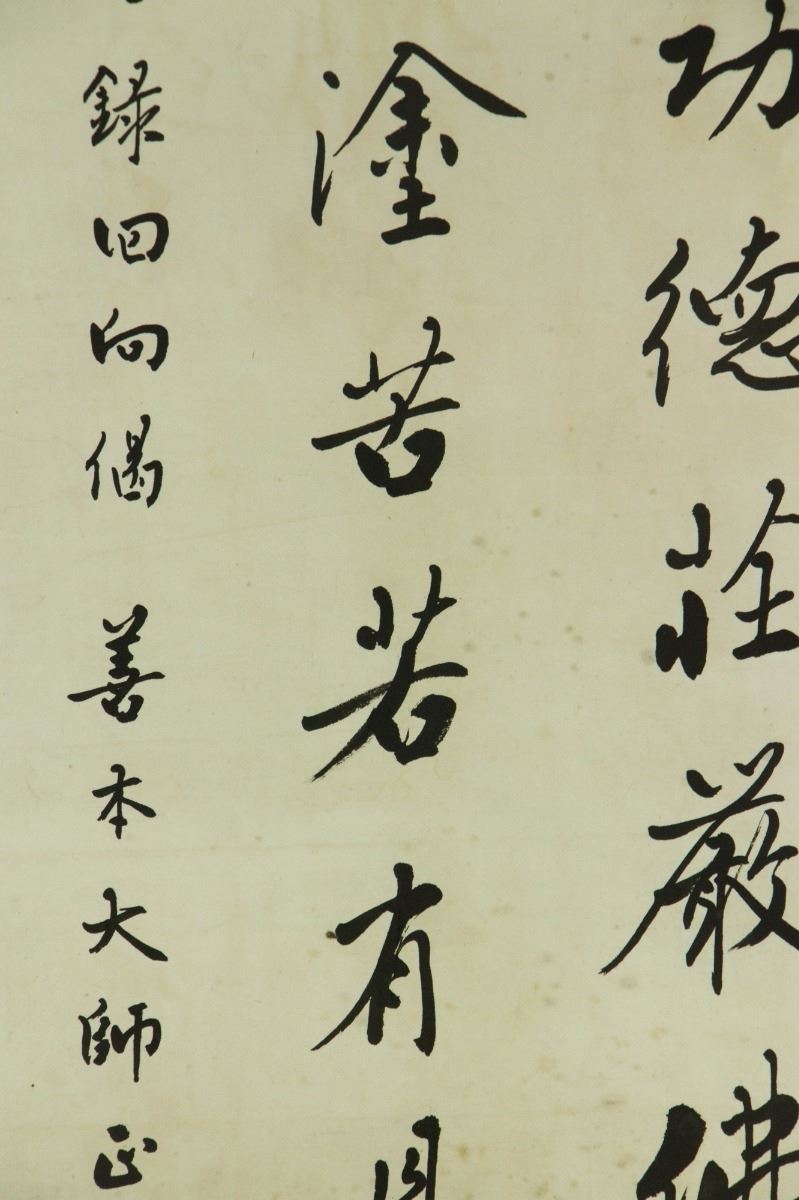 功德莊嚴佛
塗苦若有見
錄回向偈 善本大師正